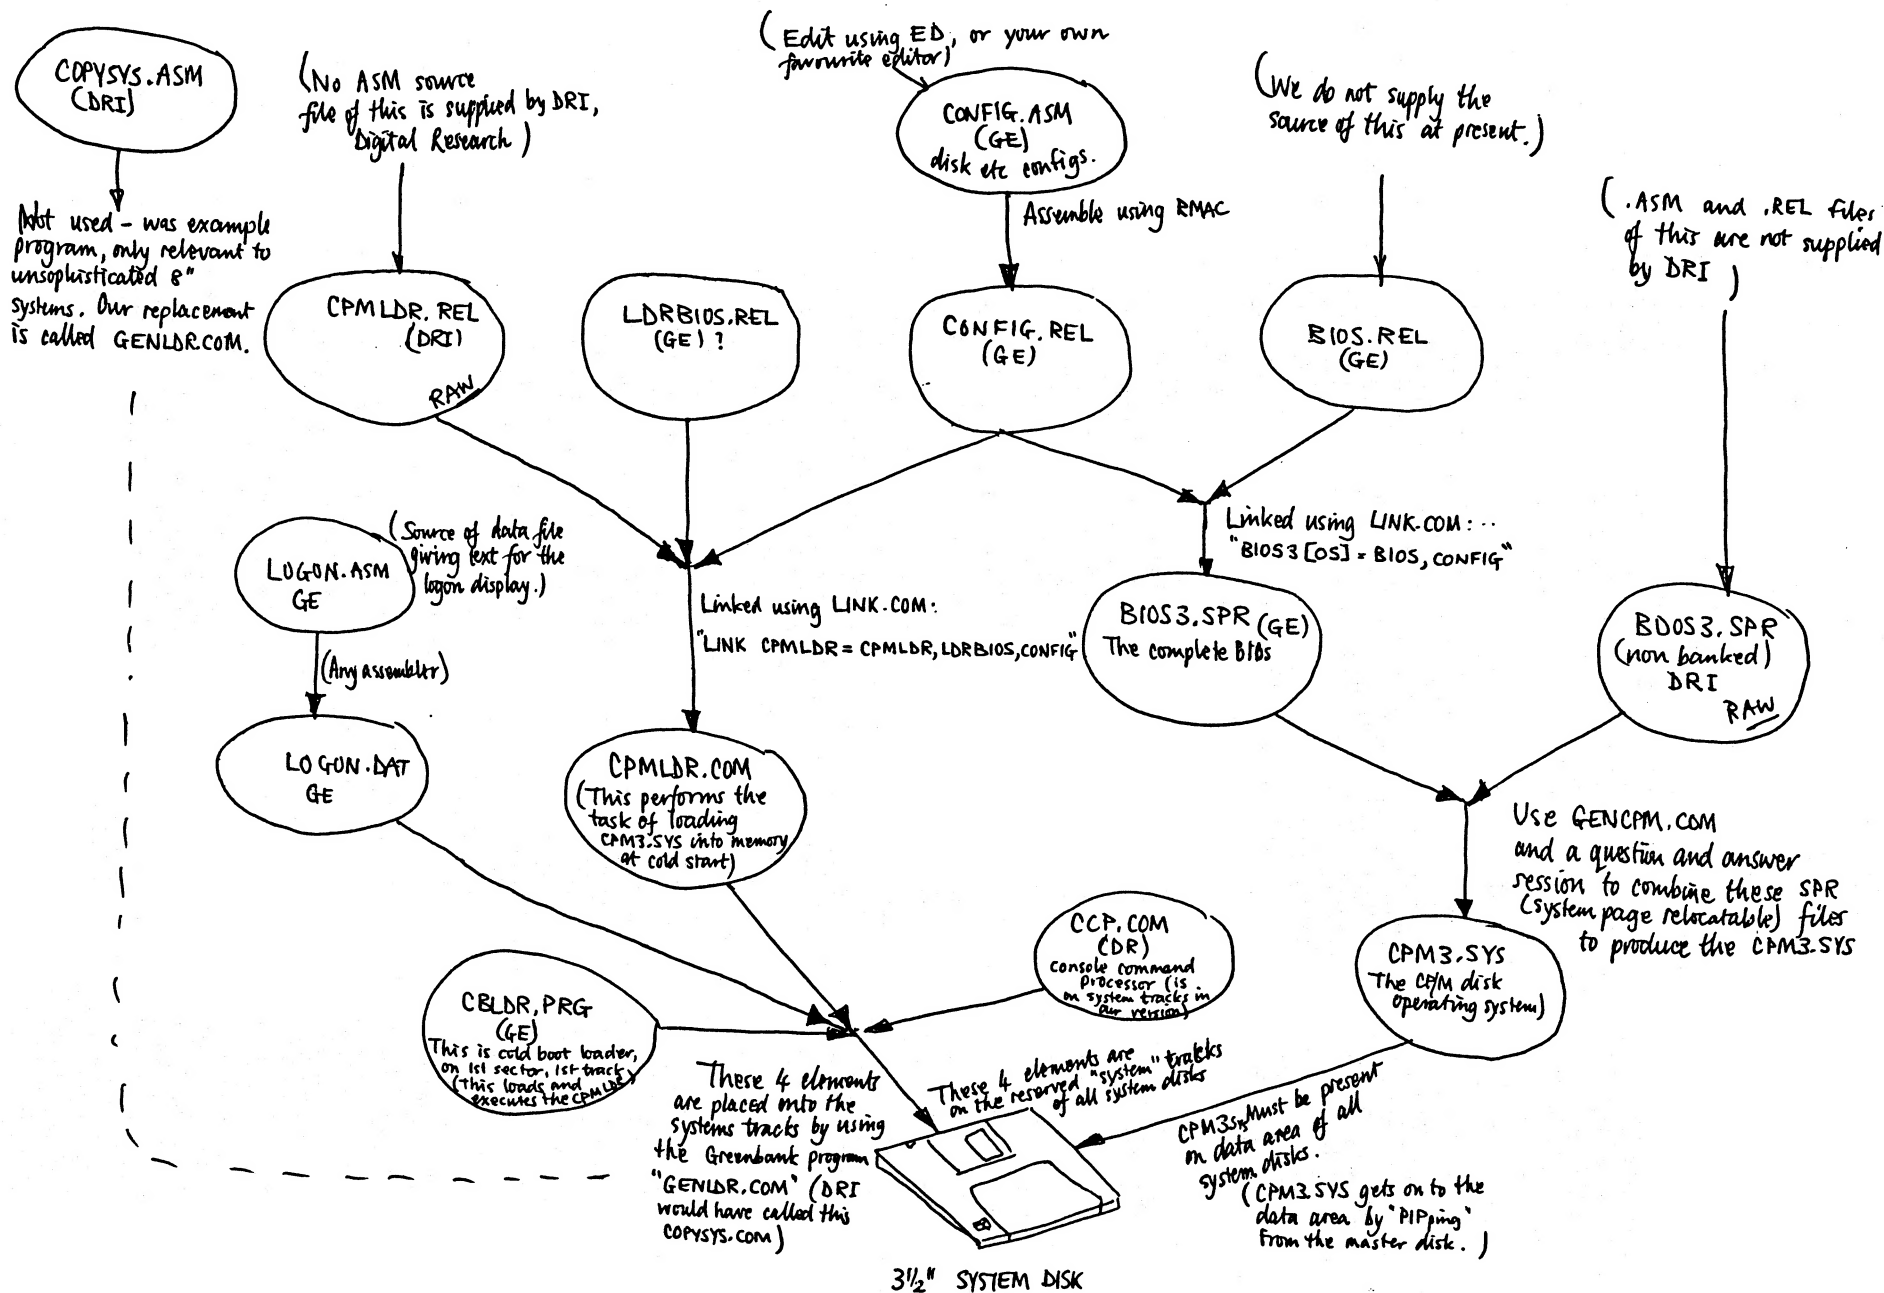 COPYSYS.ASM
(DRI)
Not used – was example
program, only relevant to
unsophisticated 8"
systems. Our replacement
is called GENLDR.COM.
(No ASM source
file of this is supplied by DRI,
Digital Research)
CPMLDR.REL
(DRI)
RAW
LDRBIOS.REL
(GE) ?
(Edit using ED, or your own
favourite editor)
CONFIG.ASM
(GE)
disk etc configs.
Assemble using RMAC
CONFIG.REL
(GE)
(We do not supply the
source of this at present.)
BIOS.REL
(GE)
(.ASM and .REL files
of this are not supplied
by DRI)
LOGON.ASM
GE
(Source of data file
giving text for the
logon display.)
(Any assembler)
LOGON.DAT
GE
Linked using LINK.COM:
"LINK CPMLDR = CPMLDR, LDRBIOS, CONFIG"
Linked using LINK.COM: ..
"BIOS3 [OS] = BIOS, CONFIG"
BIOS3.SPR (GE)
The complete BIOS
BDOS3.SPR
(non banked)
DRI
RAW
CPMLDR.COM
(This performs the
task of loading
CPM3.SYS into memory
at cold start)
Use GENCPM.COM
and a question and answer
session to combine these SPR
(system page relocatable) files
to produce the CPM3.SYS
CCP.COM
(DR)
console command
processor (is
on system tracks in
our version)
CPM3.SYS
The CP/M disk
operating system)
CBLDR.PRG
(GE)
This is cold boot loader,
on 1st sector, 1st track
(This loads and
executes the CPMLDR)
These 4 elements
are placed onto the
systems tracks by using
the Greenbank program
"GENLDR.COM" (DRI
would have called this
COPYSYS.COM)
These 4 elements are
on the reserved "system" tracks
of all system disks
CPM3.SYS Must be present
on data area of all
system disks.
(CPM3.SYS gets on to the
data area by "PIPping"
from the master disk.)
3½" SYSTEM DISK